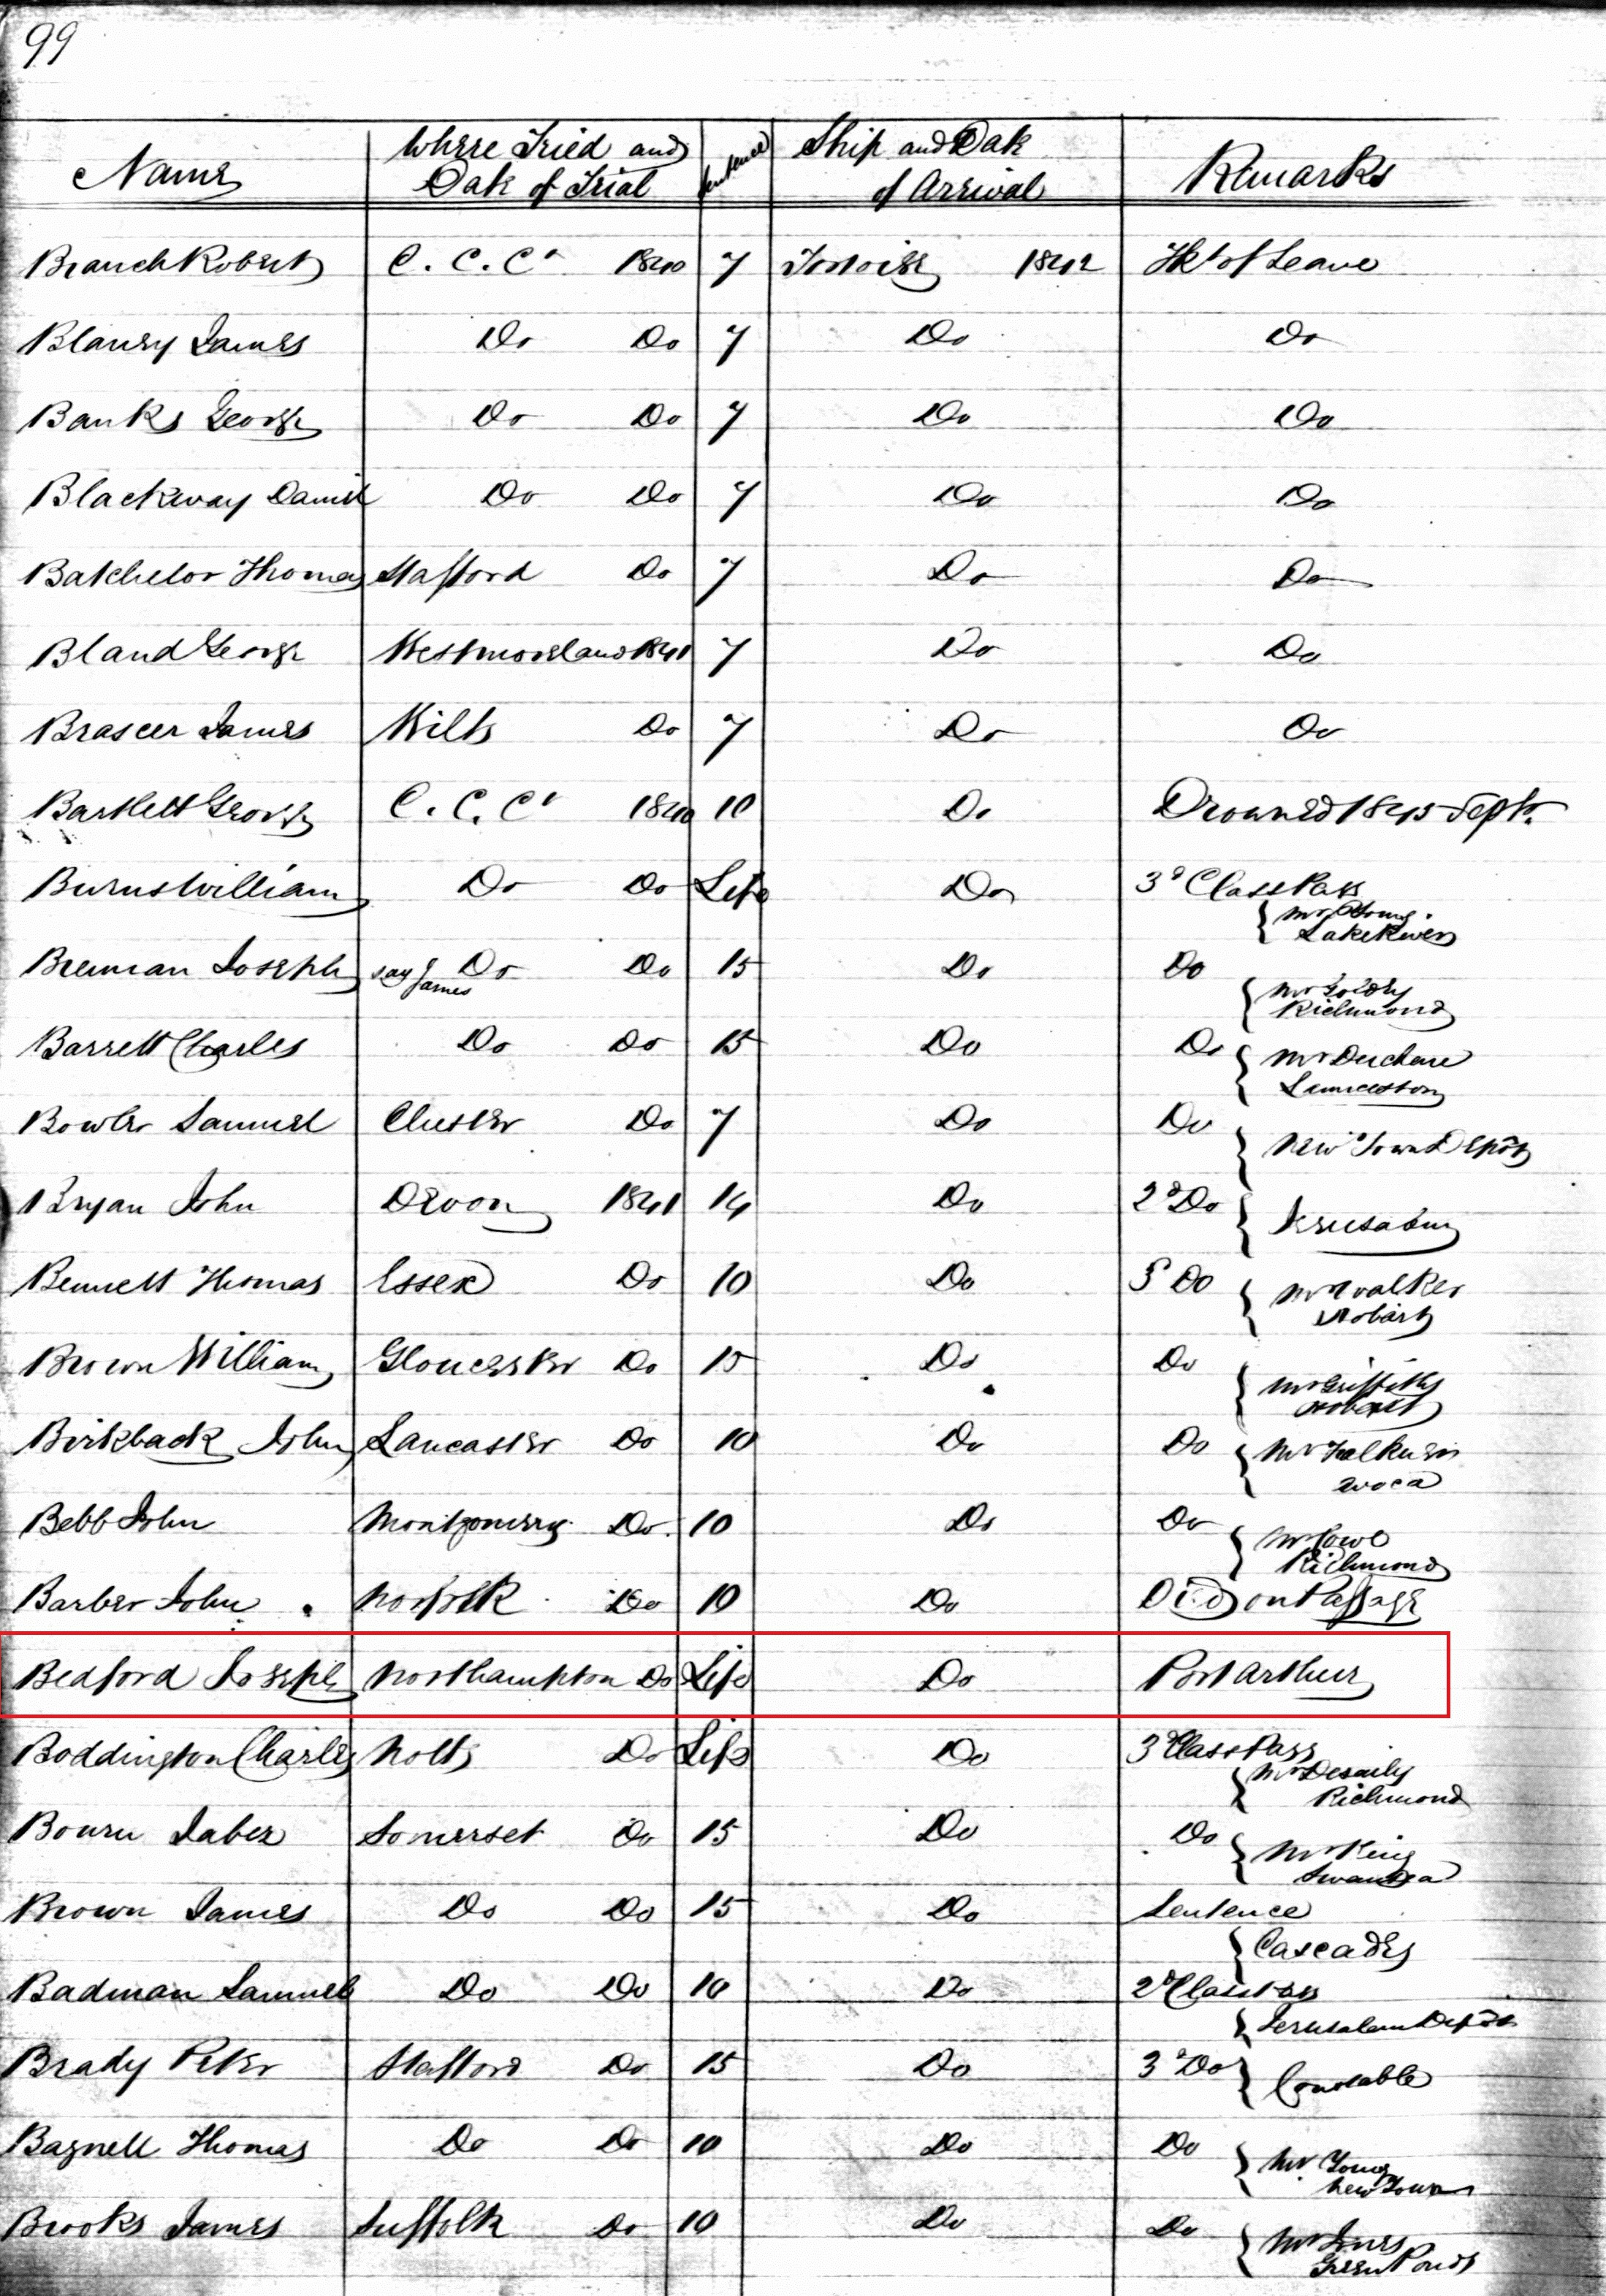 99
Name Where Tried and Date of Trial Sentence Ship and Date of Arrival Remarks
Branch Robert C. C. Ct 1840 7 Tortoise 1842 Tkt of Leave
Blaney James Do Do 7 Do Do
Banks George Do Do 7 Do Do
Blackway Daniel Do Do 7 Do Do
Batchelor Thomas Stafford Do 7 Do Do
Bland George Westmoreland 1841 7 Do Do
Braseer James Wilts Do 7 Do Do
Bartlett George C. C. Ct 1840 10 Do Drowned 1845 Septr.
Burns William Do Do Life Do 3d Class Pass
{ Mr Young
Lake River
Brennan Joseph say James Do Do 15 Do Do
{ Mr
Richmond
Barrett Charles Do Do 15 Do Do { Mr
Launceston
Bowler Samuel Chester Do 7 Do Do
{ New Town Depôt
Bryan John Devon 1841 14 Do 2d Do { Jerusalem
Bennett Thomas Essex Do 10 Do 3 Do { Mr Walker
Hobart
Brown William Gloucester Do 15 Do Do
{ Mr Griffiths
Hobart
Birkback John Lancaster Do 10 Do Do { Mr
Avoca
Bebb John Montgomery Do 10 Do Do { Mr Cowe
Richmond
Barber John Norfolk Do 10 Do Died on Passage
Bedford Joseph Northampton Do Life Do Port Arthur
Boddington Charles Notts Do Life Do 3d Class Pass
{ Mr Desaily
Richmond
Bourn Jabez Somerset Do 15 Do Do { Mr King
Swansea
Brown James Do Do 15 Do Sentence
{ Cascades
Badman Samuel Do Do 10 Do 2d Class Pass
{ Jerusalem Depôt
Brady Peter Stafford Do 15 Do 3d Do { Constable
Bagnell Thomas Do Do 10 Do Do { Mr Young
New Town
Brooks James Suffolk Do 10 Do Do { Mr Jones
Green Ponds